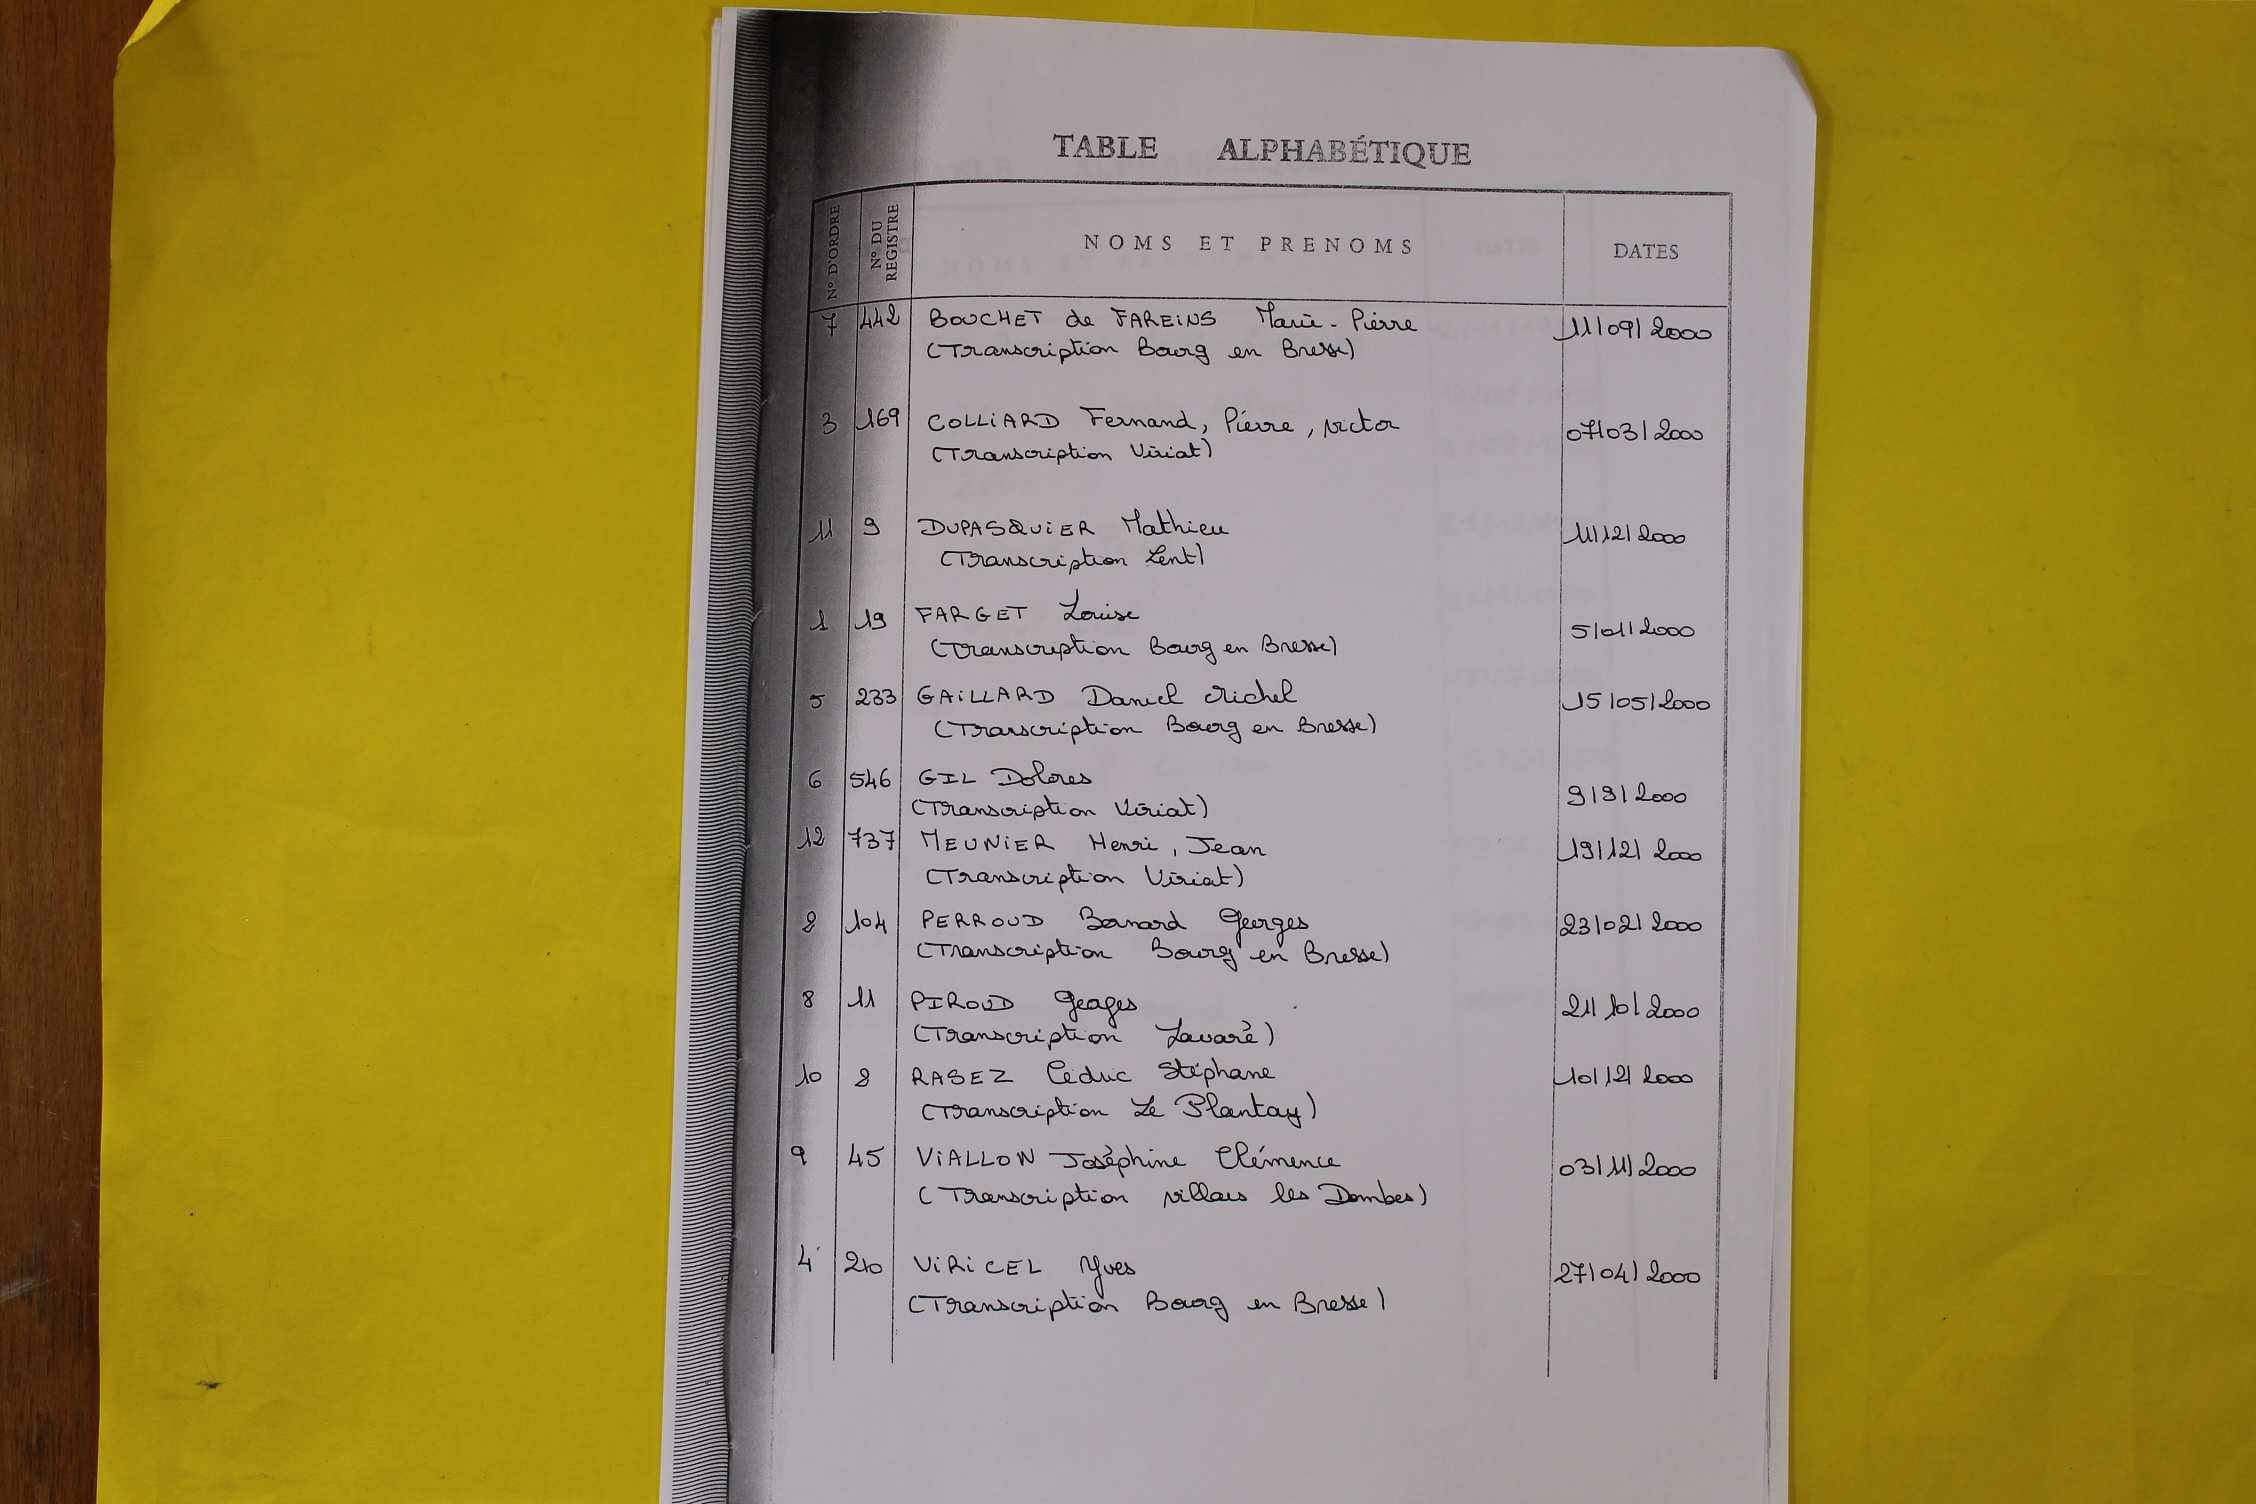 TABLE ALPHABÉTIQUE
N° D'ORDRE N° DU REGISTRE NOMS ET PRENOMS DATES
7 442 BOUCHET de FAREiNS Marie-Pierre 11/09/2000
(Transcription Bourg en Bresse)
3 169 COLLiARD Fernand, Pierre, victor 07/03/2000
(Transcription Viriat)
11 9 DUPASQUiER Mathieu 11/12/2000
(Transcription Lent)
1 19 FARGET Louise 5/01/2000
(Transcription Bourg en Bresse)
5 233 GAiLLARD Daniel Michel 15/05/2000
(Transcription Bourg en Bresse)
6 546 GIL Dolores 9/9/2000
(Transcription Viriat)
12 737 MEUNiER Henri, Jean 19/12/2000
(Transcription Viriat)
2 104 PERROUD Bernard Georges 23/02/2000
(Transcription Bourg en Bresse)
8 11 PIROUD Georges 21/10/2000
(Transcription Lavaré)
10 8 RASEZ Cédric Stéphane 10/12/2000
(Transcription Le Plantay)
9 45 ViALLON Joséphine Clémence 03/11/2000
(Transcription villars les Dombes)
4 210 ViRiCEL Yves 27/04/2000
(Transcription Bourg en Bresse)